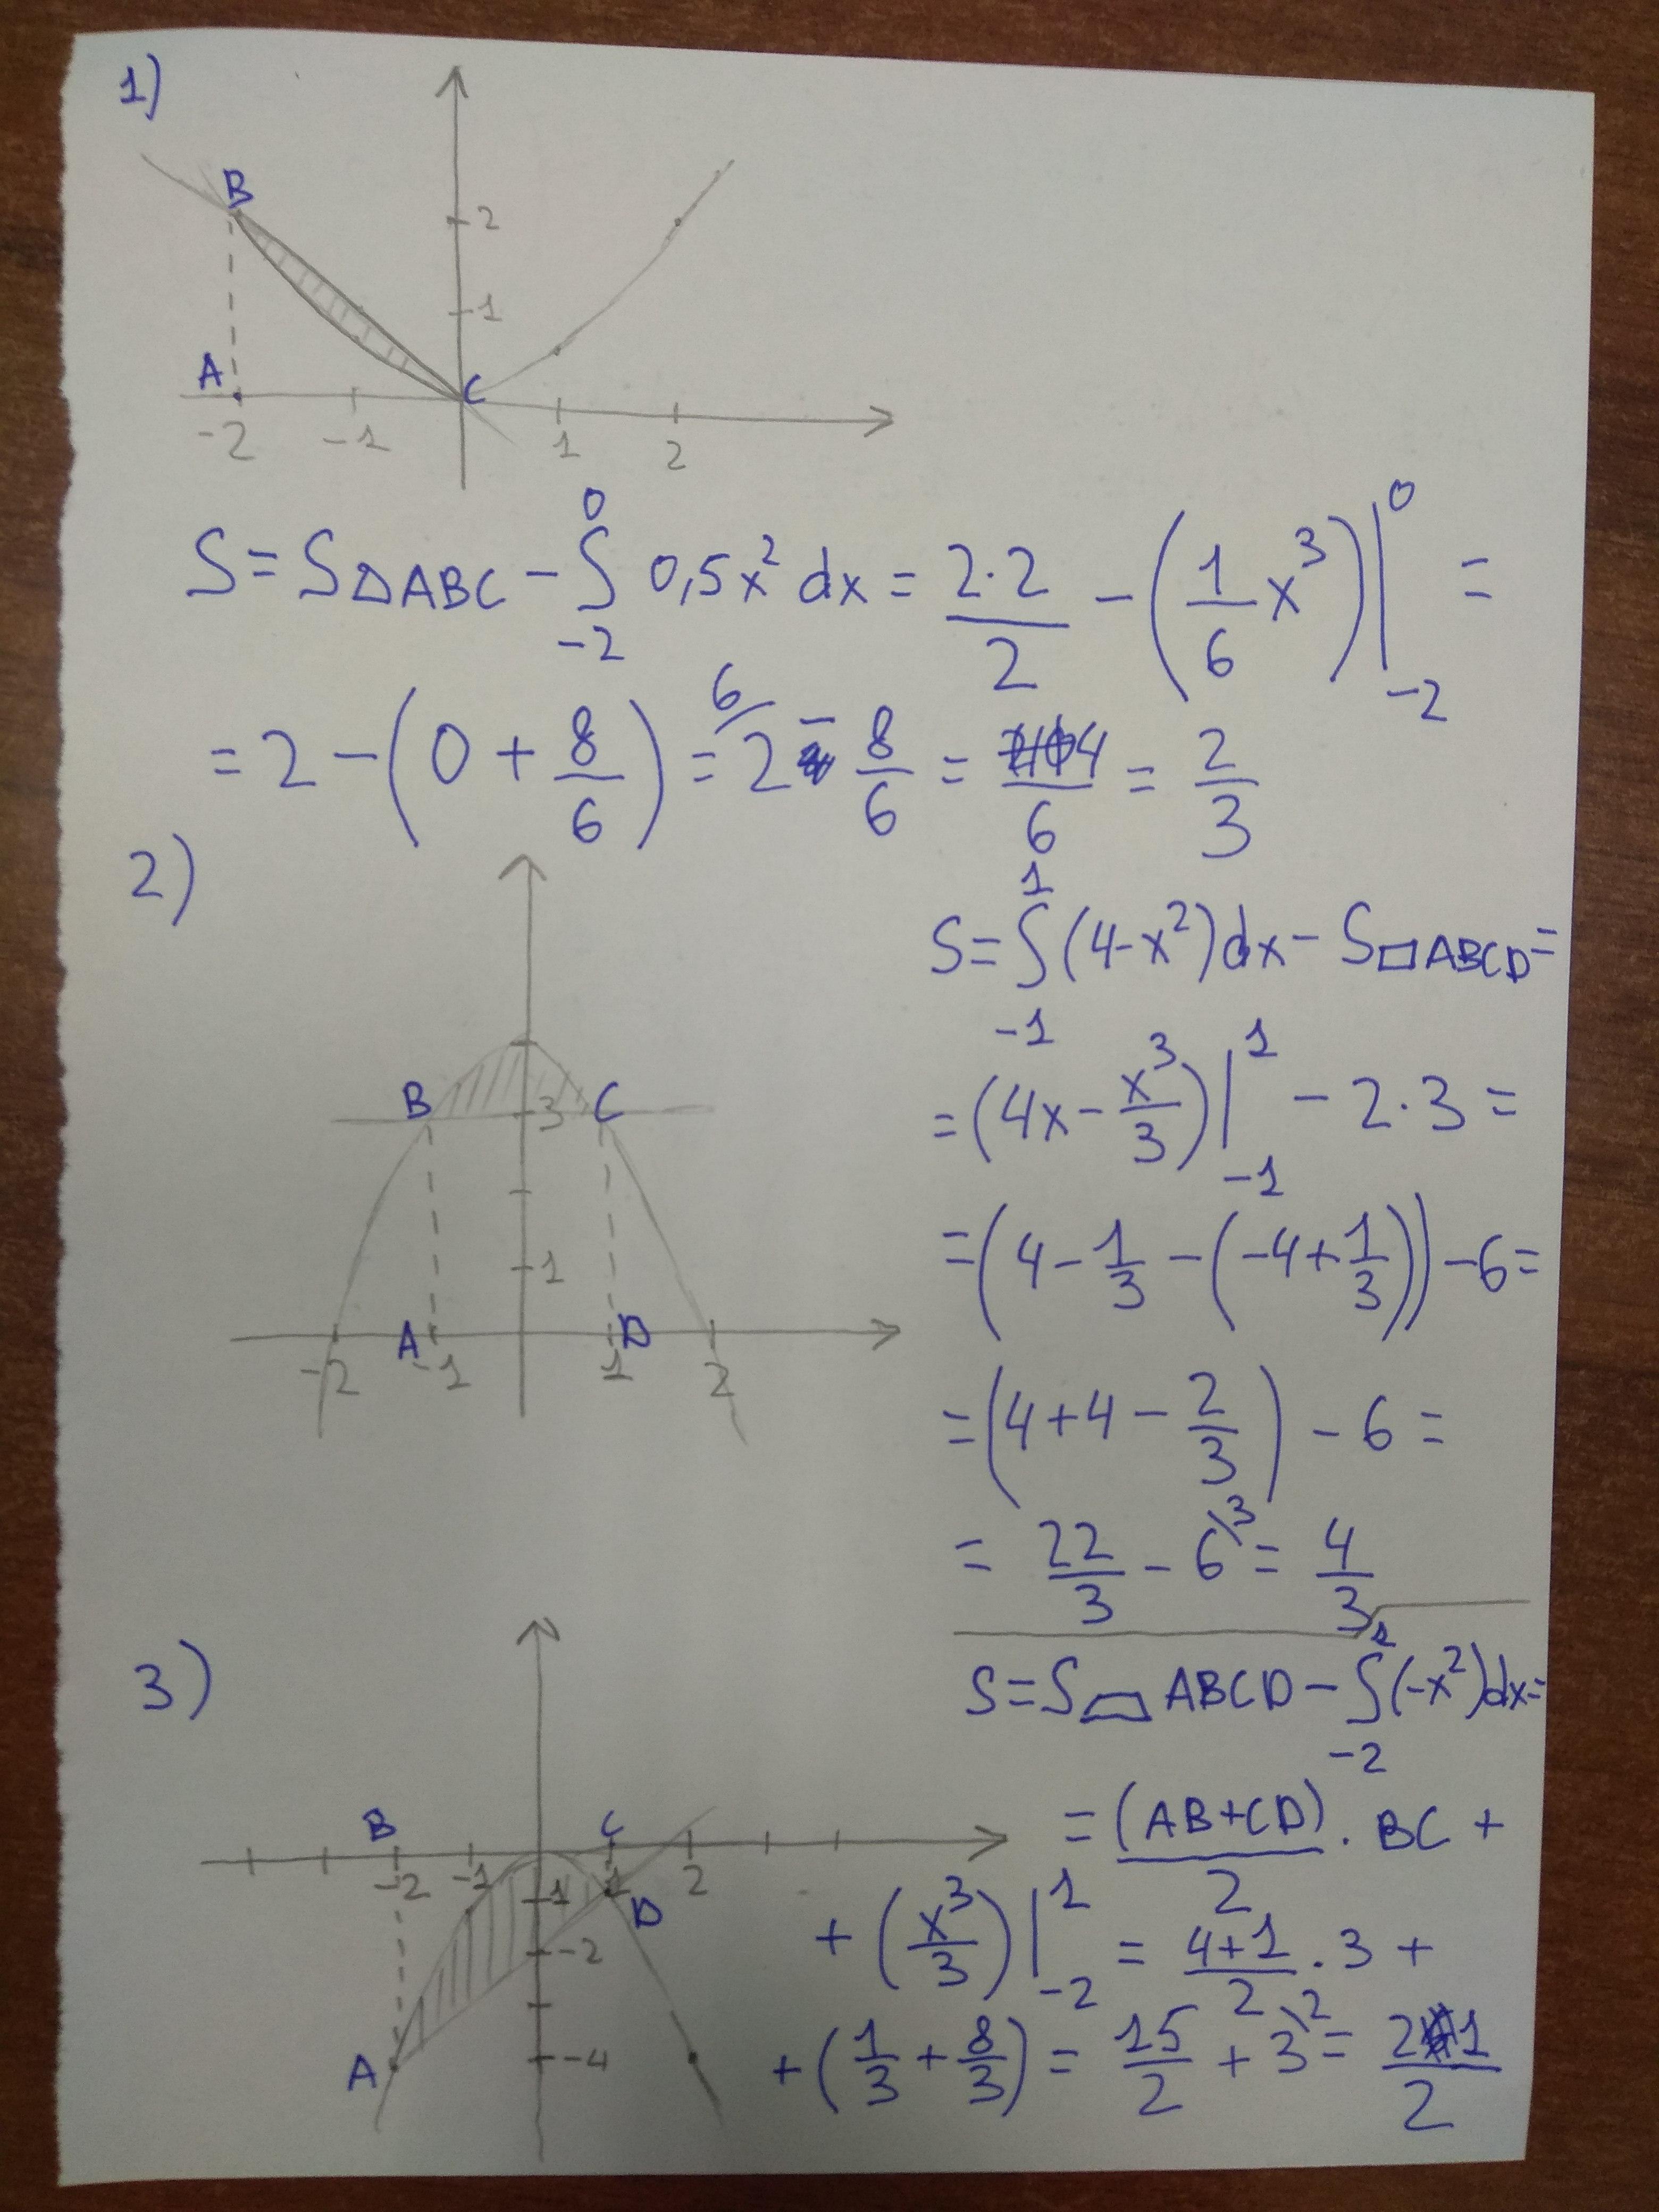 1)
B
2
1
A
C
-2 -1 1 2
S = S△ABC - ∫₋₂⁰ 0,5x² dx = 2·2/2 - (1/6 x³)|₋₂⁰ =
= 2 - (0 + 8/6) = 2 - 8/6 = 4/6 = 2/3
2)
B 3 C
1
A D
-2 -1 1 2
S = ∫₋₁¹ (4-x²)dx - S▭ABCD =
= (4x - x³/3)|₋₁¹ - 2·3 =
= (4 - 1/3 - (-4 + 1/3)) - 6 =
= (4+4 - 2/3) - 6 =
= 22/3 - 6\3 = 4/3
3)
B C
-2 -1 1 2
-1 D
-2
A -4
S = S⏢ABCD - ∫₋₂¹ (-x²)dx =
= (AB+CD)/2 · BC +
+ (x³/3)|₋₂¹ = 4+1/2 · 3 +
+ (1/3 + 8/3) = 15/2 + 3\2 = 21/2